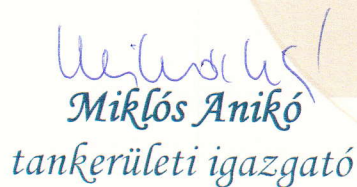 Miklós Anikó
tankerületi igazgató